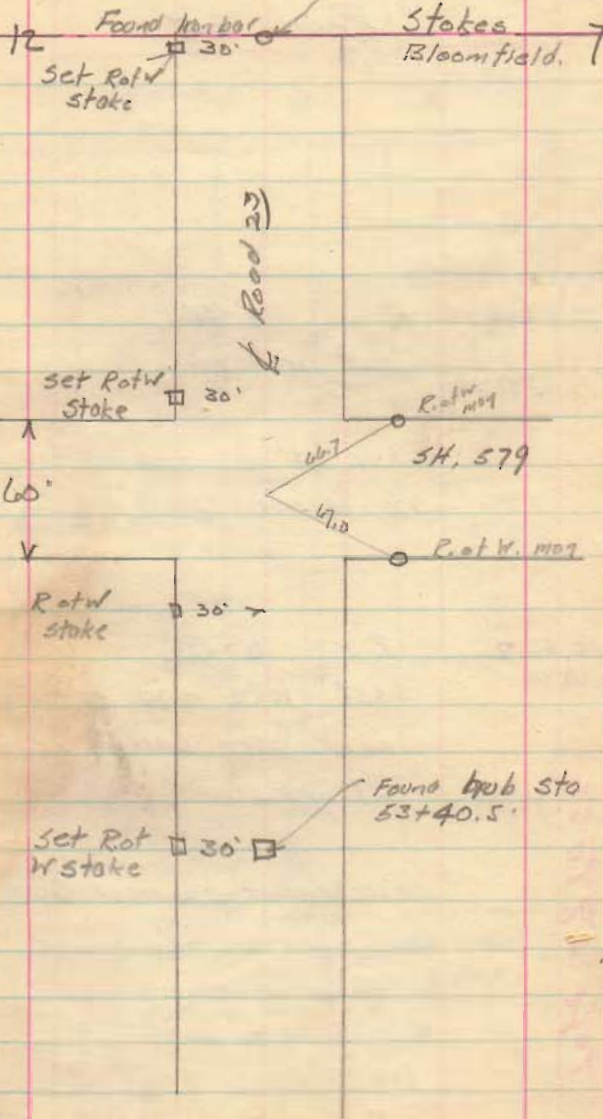 12 Found Iron bar Stokes 7
30' Bloomfield.
Set RofW
stake
℄ Road 23
Set RofW 30'
Stake
R.ofW
mon
66.7 SH, 579
60'
R.of W. mon
RofW 30'
stake
Found hub sta
53+40.5
Set Rof 30'
W stake